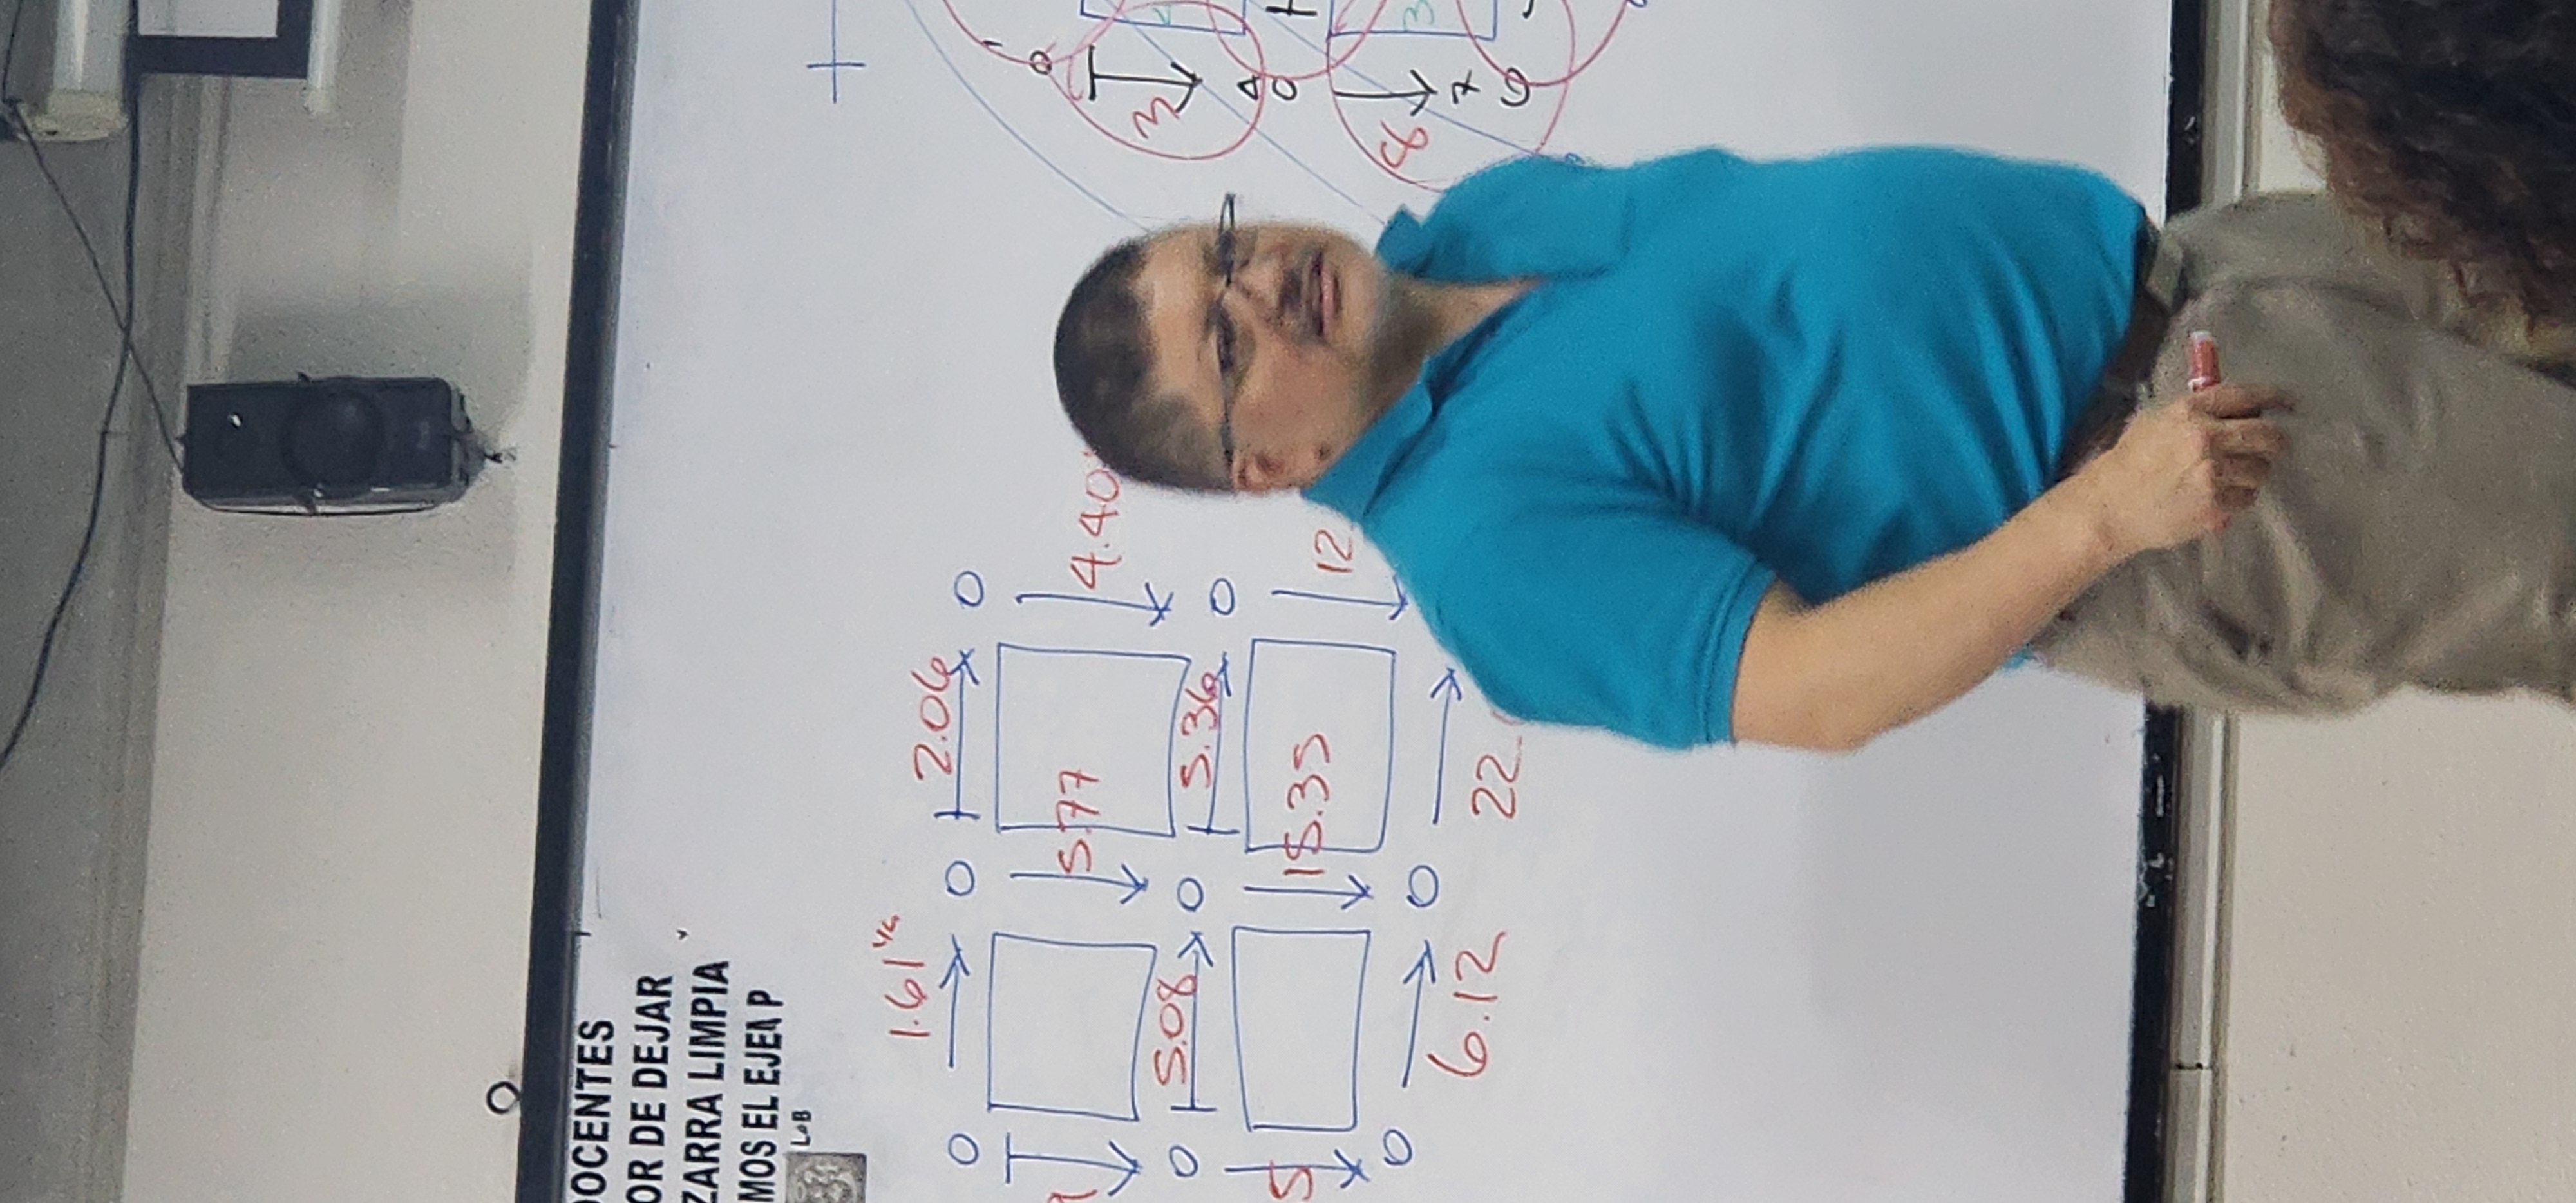 DOCENTES
OR DE DEJAR
ZARRA LIMPIA
MOS EL EJEM P
1.61
2.06
5.77
4.40
5.08
5.36
5
15.35
12
6.12
22
3
4
8
7